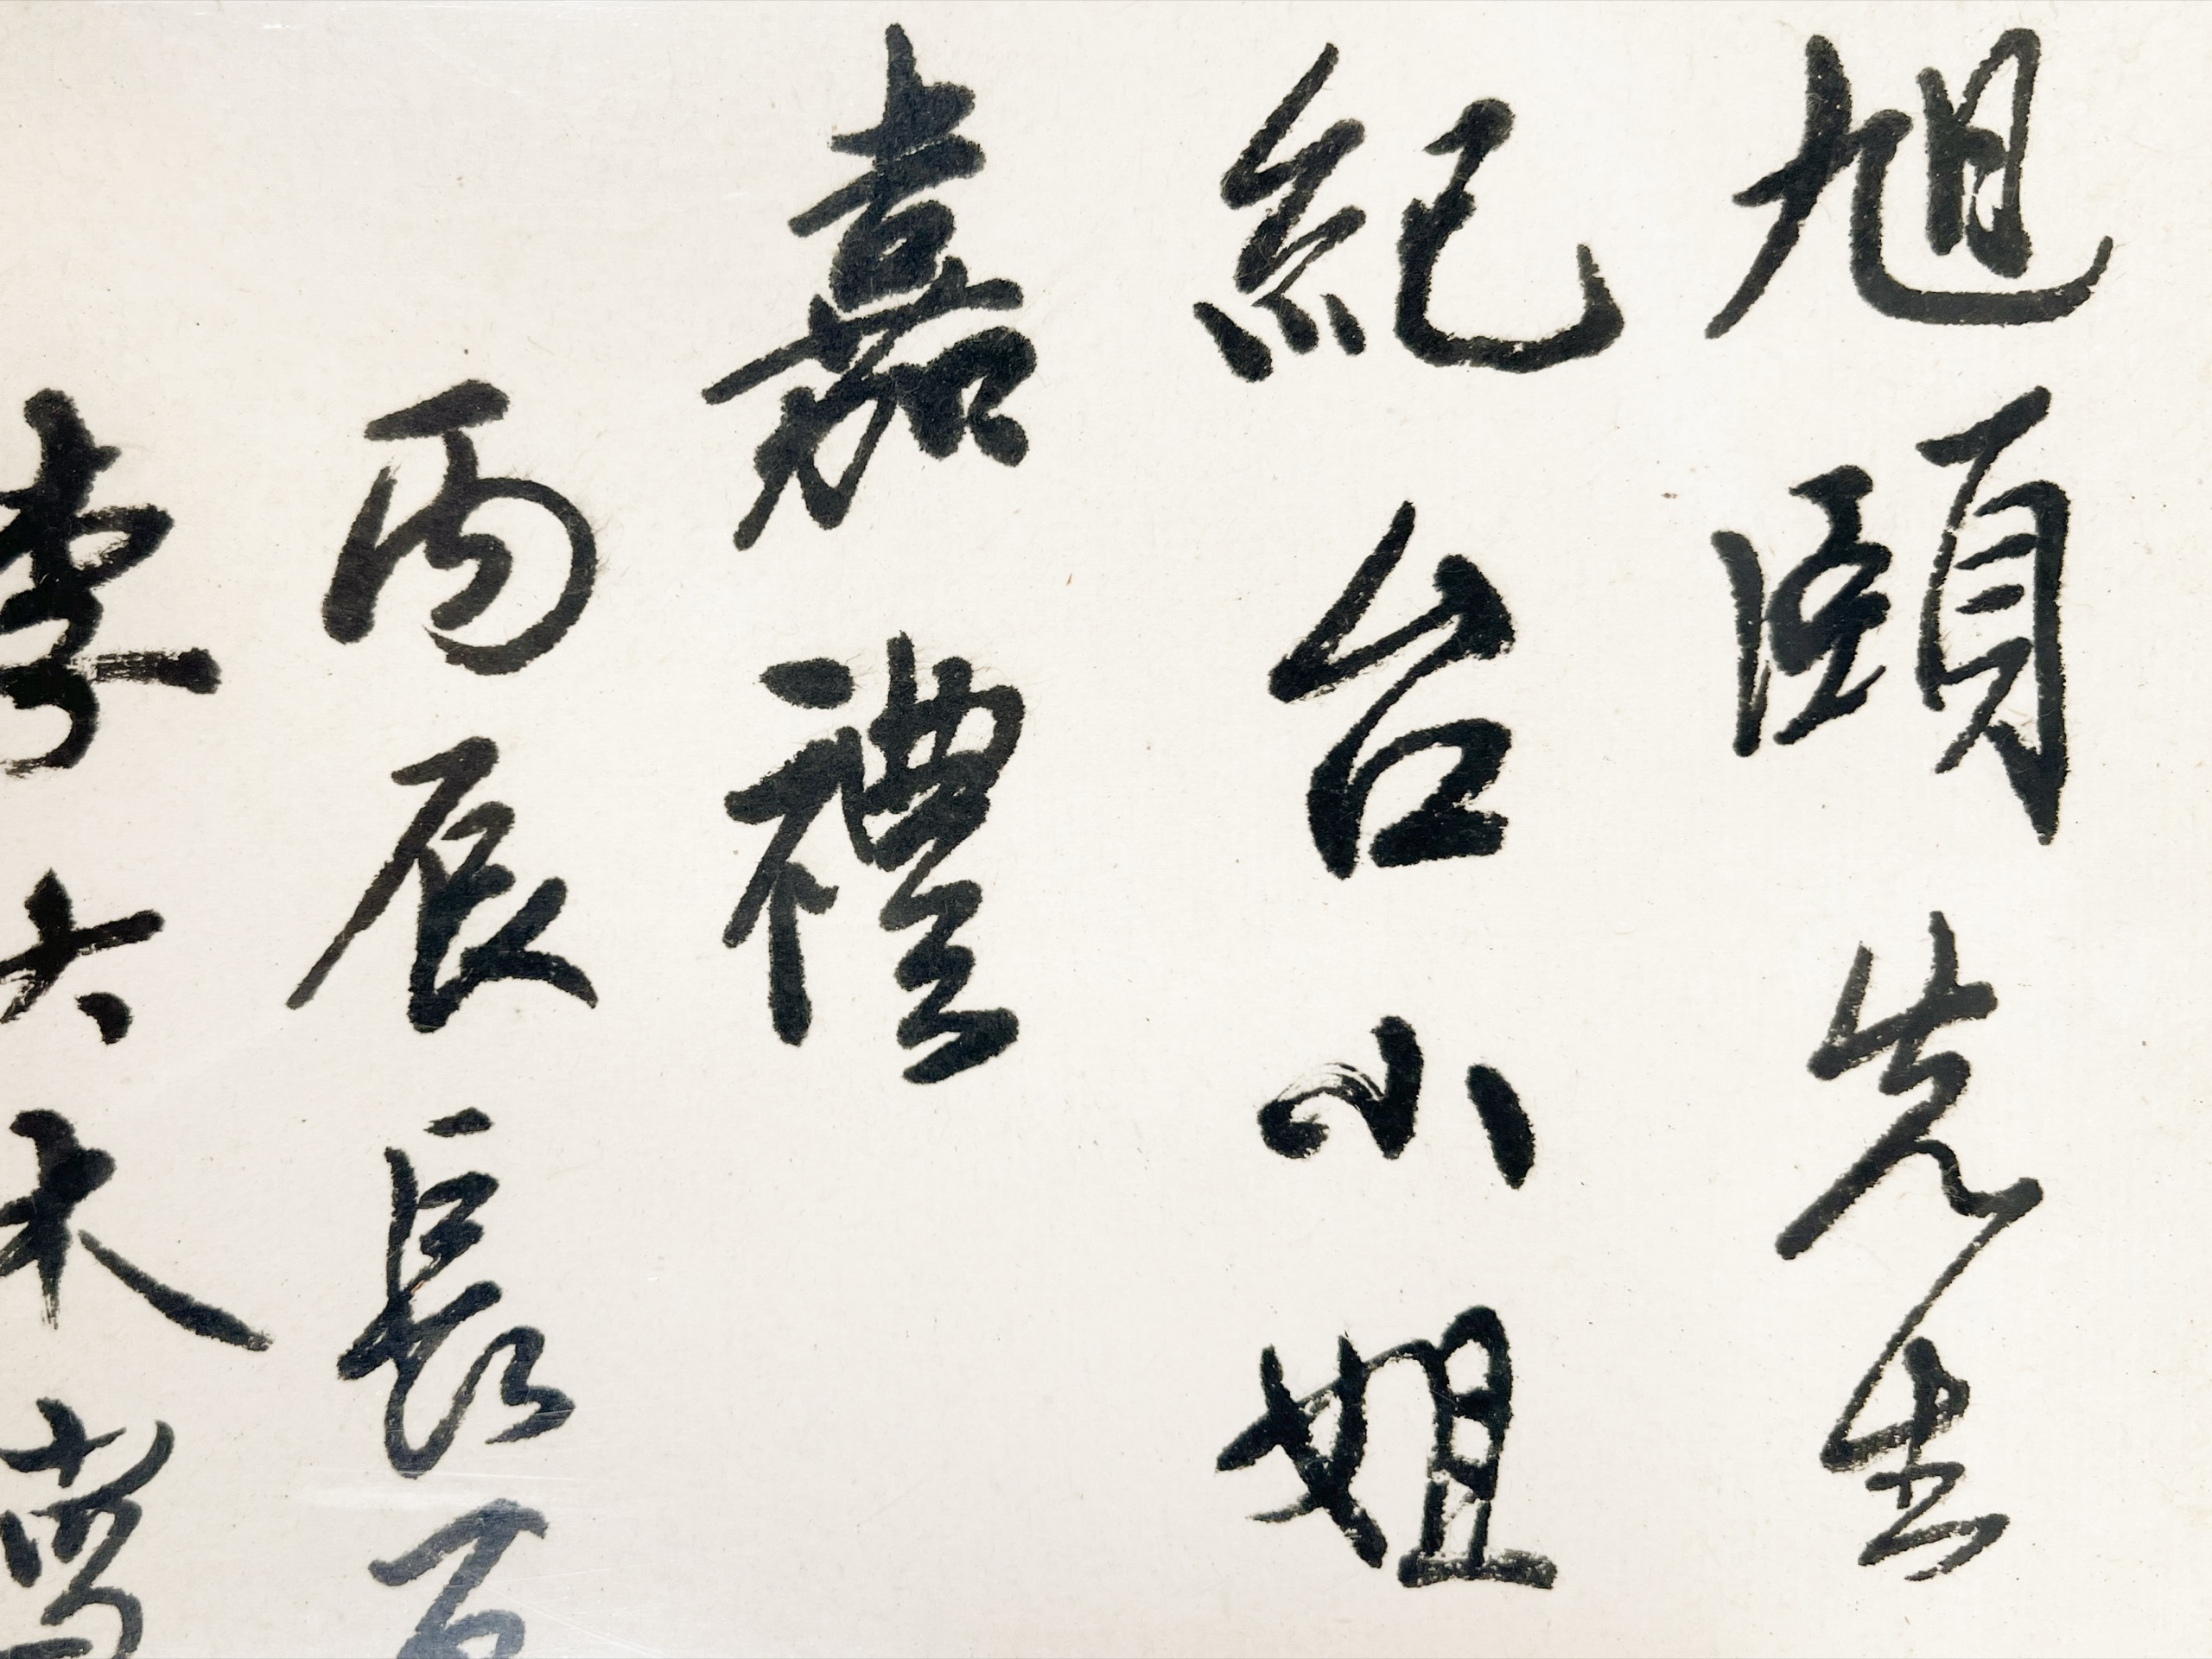 旭頤先生
紀台小姐
嘉禮
丙辰長夏
李大木